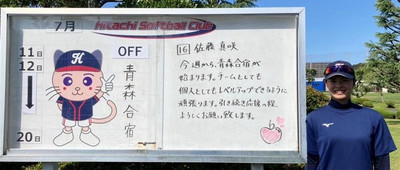 7月 Hitachi Softball Club
11日
12日
20日
OFF
青森合宿
H
16 佐藤 真咲
今週から、青森合宿が
始まります。チームとしても
個人としてもレベルアップできるように
頑張ります。引き続き応援の程、
よろしくお願い致します。